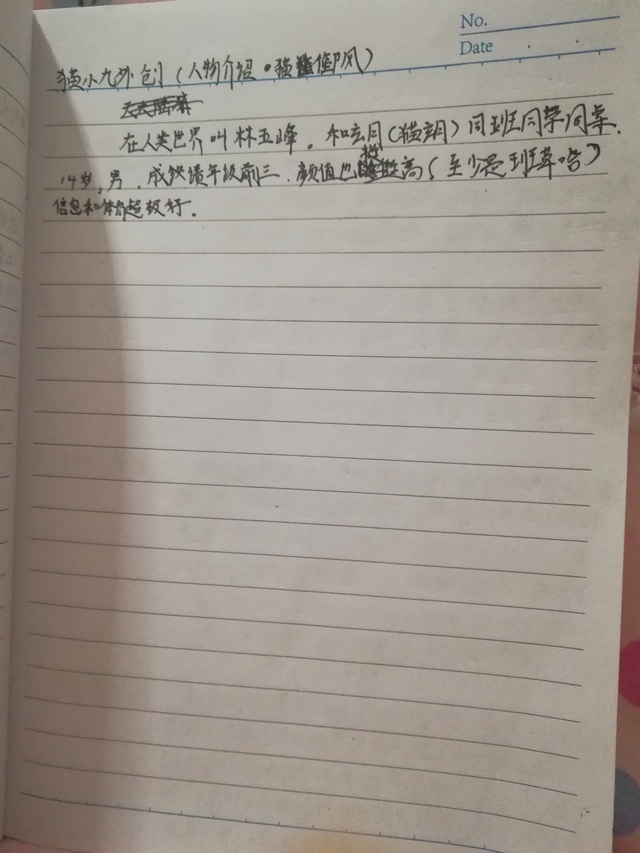 No.
Date
猫小九外创(人物介绍·猫御风)
在人类世界叫林五峰。和玄月(猫玥)同班同学同桌.
14岁,男.成绩年级前三.颜值也挺高(至少是班草哈)
信息和体育超级好.